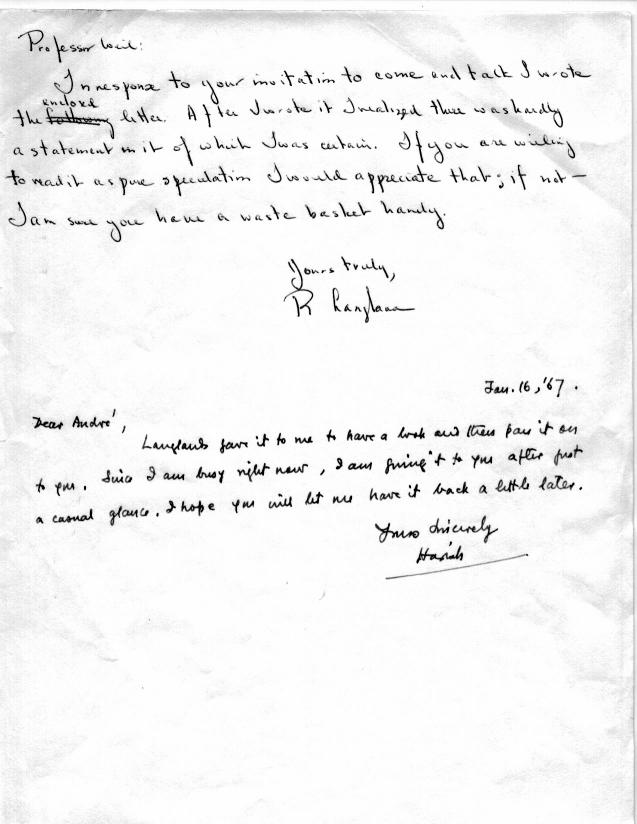 Professor Weil:
In response to your invitation to come and talk I wrote
enclosed
the following letter. After I wrote it I realized there was hardly
a statement in it of which I was certain. If you are willing
to read it as pure speculation I would appreciate that; if not –
I am sure you have a waste basket handy.
Yours truly,
R Langlands
Jan. 16, '67.
Dear André,
Langlands gave it to me to have a look and then pass it on
to you. Since I am busy right now, I am giving it to you after just
a casual glance. I hope you will let me have it back a little later.
Yours sincerely
Harish